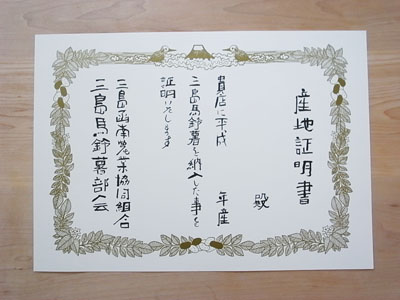 産地証明書
殿
貴店に平成　　年産
三島馬鈴薯を納入した事を
証明いたします
三島函南農業協同組合
三島馬鈴薯部会